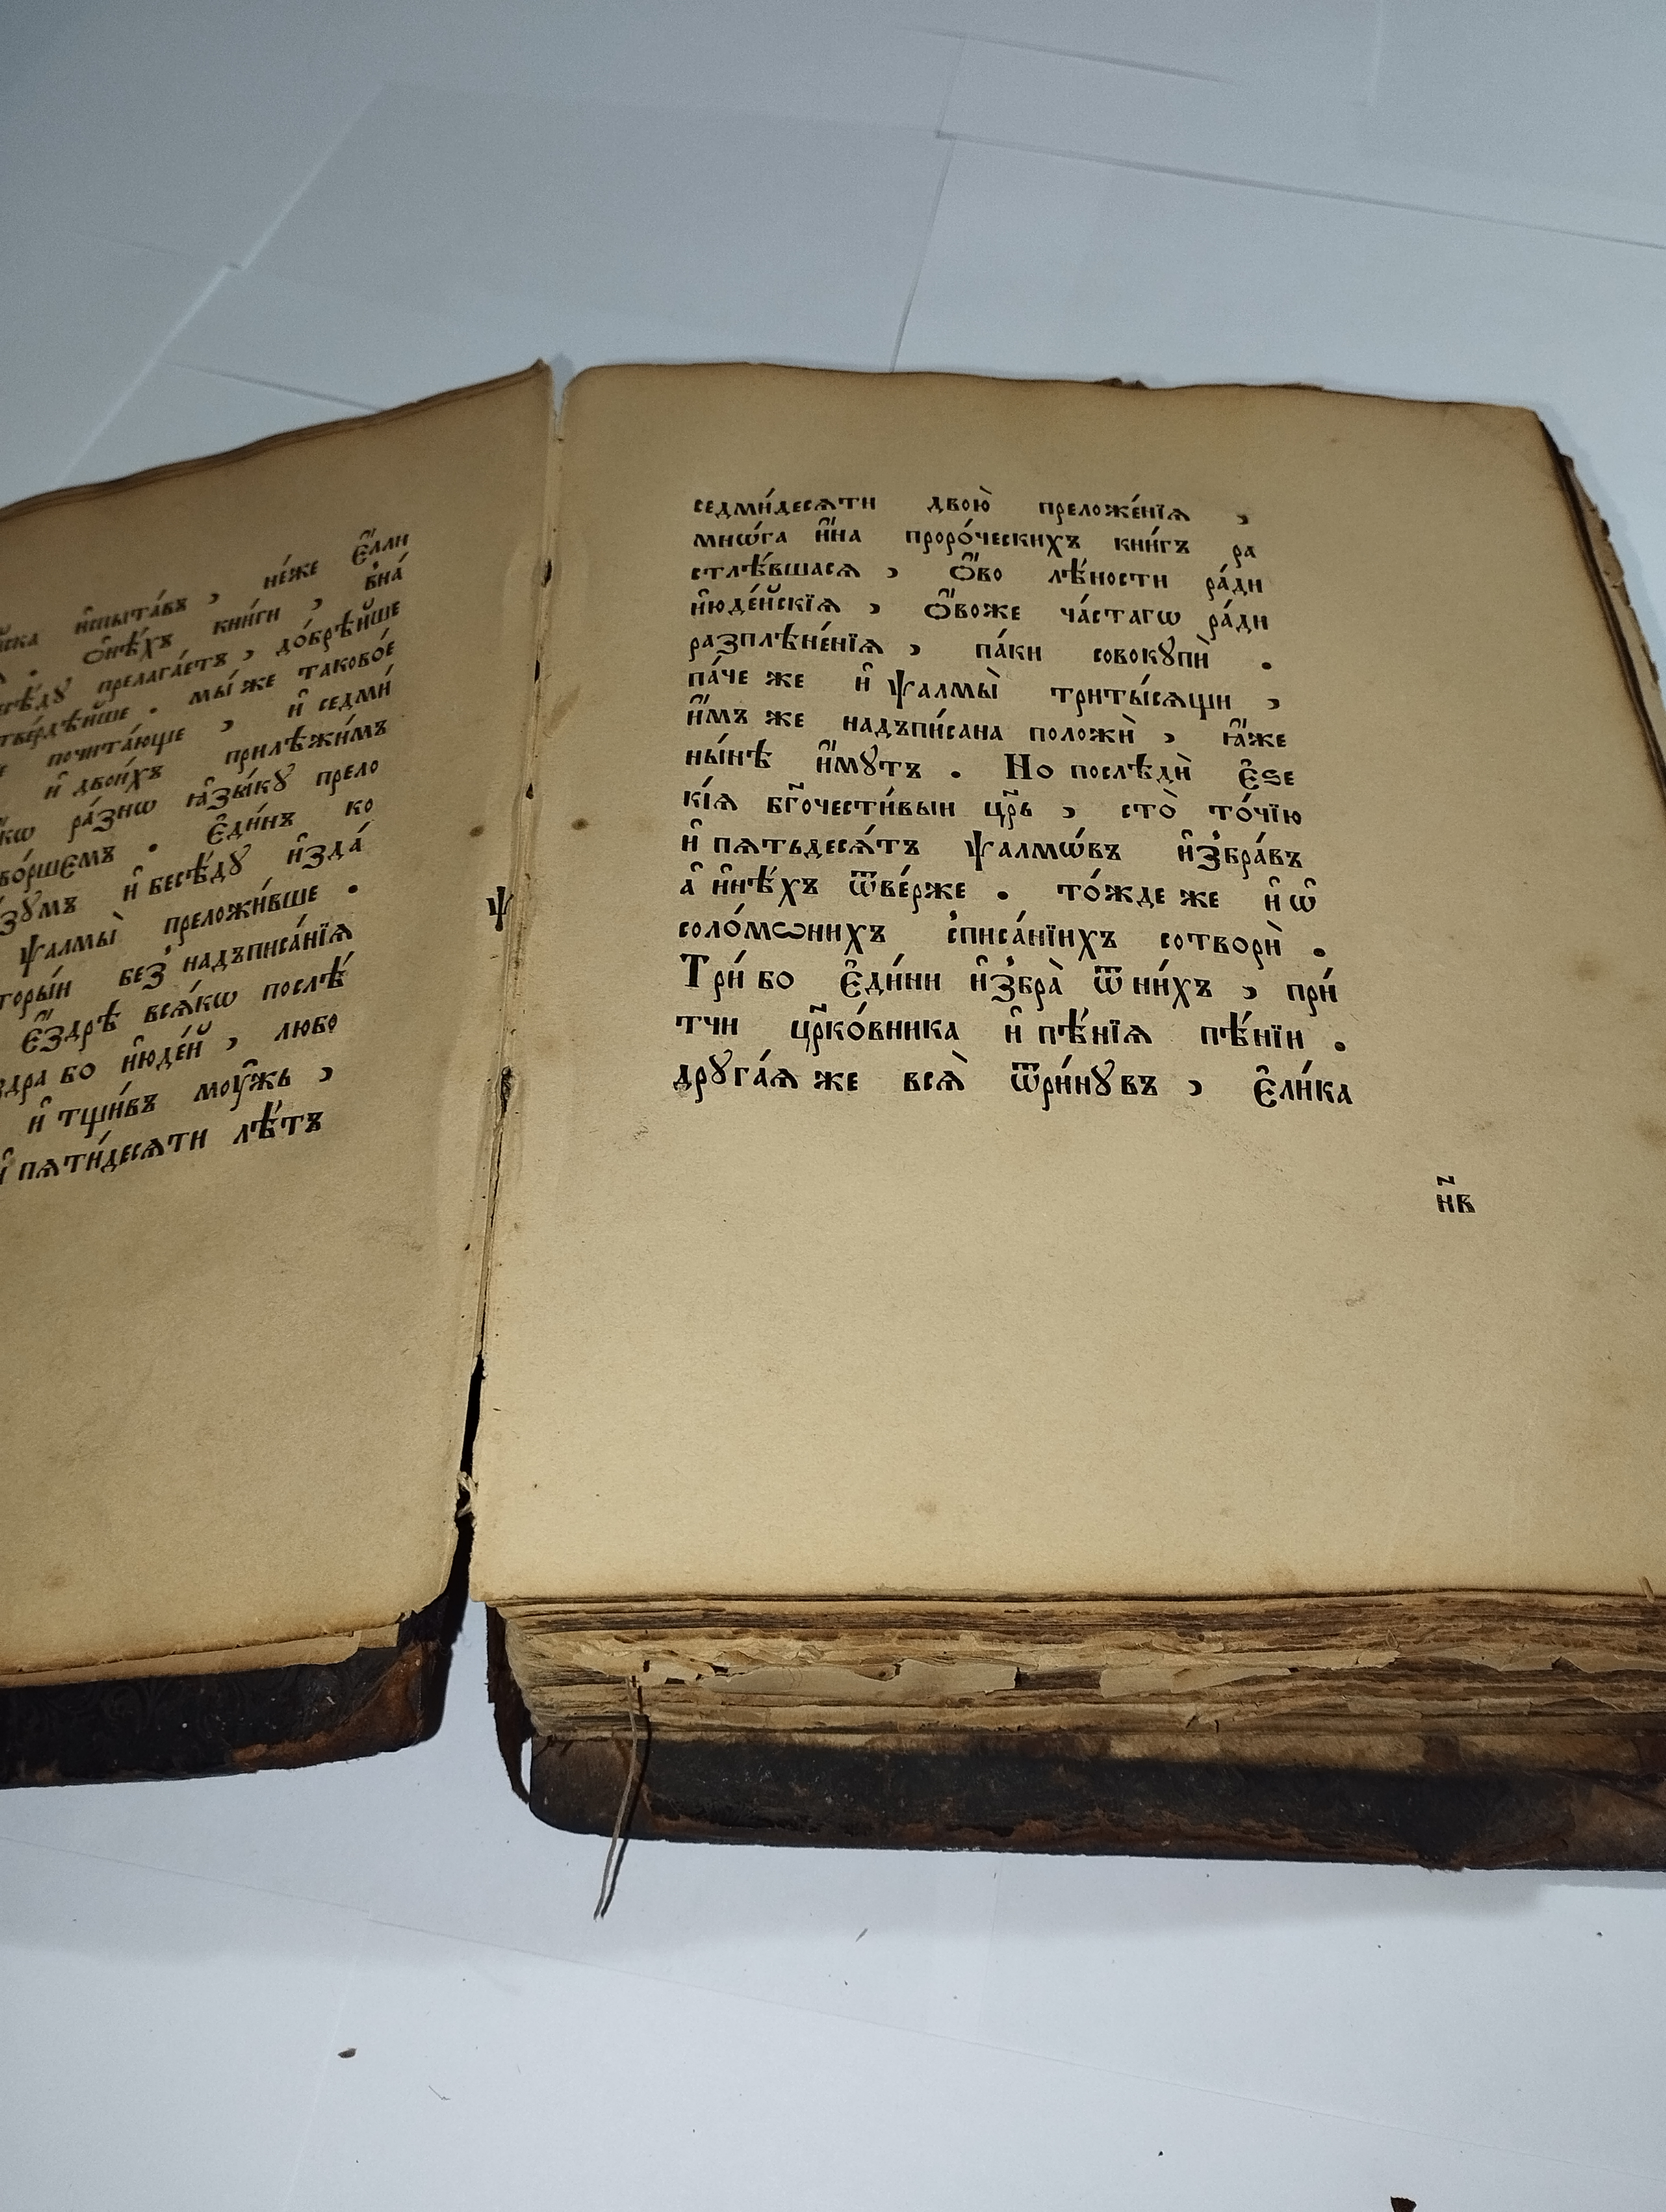 и҆спыта́въ , не́же є҆́лли
. ѻ҆нѣ́хъ кни́ги , в̾на́
прелага́етъ , до́брѣйше
. мы́ же таково́е
почита́юще , и҆ седми́
и҆ двои́хъ прилѣжи́мъ
ра́знѡ ꙗ҆зы́кꙋ прело
. є҆ди́нъ ко
и҆ бесѣ́дꙋ и҆зда́
ѱалмы̀ преложи́вше .
без̾ надъписа́нїѧ
є҆́здрѣ всѧ́кѡ послѣ́
бо и҆юде́й , любо
и҆ тщи́въ моу́жь ,
пѧти́десѧти лѣ́тъ
ѱ
седми́десѧти двою̀ преложе́нїѧ ,
мнѡ́га и҆́на проро́ческихъ кни́гъ ра
стлѣ́вшасѧ , ѻ҆́во лѣ́ности ра́ди
и҆юде́йскїѧ , ѻ҆́воже ча́стагѡ ра́ди
разплѣне́нїѧ , па́ки совокꙋпѝ .
па́че же и҆ ѱалмы̀ триты́сѧщи ,
и҆́мъ же надъпи́сана положѝ , ꙗ҆́же
ны́нѣ и҆́мꙋтъ . Но послѣдѝ є҆зе
кі́ѧ бг҃очести́выи цр҃ь , сто̀ то́чїю
и҆ пѧтьдесѧ́тъ ѱалмѡ́въ и҆з̾бра́въ
а҆ и҆нѣ́хъ ѿве́рже . то́жде же и҆ ѡ҆
соло́мѡнихъ с̾писа́нїихъ сотворѝ .
Три́ бо є҆ди́ни и҆з̾бра̀ ѿ ни́хъ , при́
тчи цр҃ко́вника и҆ пѣ́нїѧ пѣ́нїи .
дрꙋга́ѧ же всѧ̀ ѿри́нꙋвъ , є҆ли́ка
н҃в